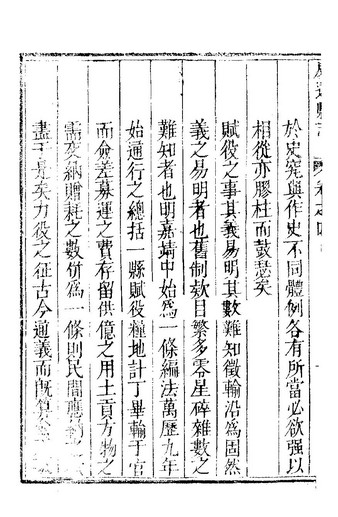 於史究與作史不同體例各有所當必欲强以
相從亦膠柱而鼓瑟矣
賦役之事其義易明其數難知徵輸沿爲固然
義之易明者也舊制欵目繁多零星碎雜數之
難知者也明嘉靖中始爲一條編法萬歷九年
始通行之總括一縣賦役糧地計丁畢輸于官
而僉差募運之費存留供億之用土貢方物之
需交納贈耗之數併爲一條則民間
盡于是矣力役之征古今通義而旣算